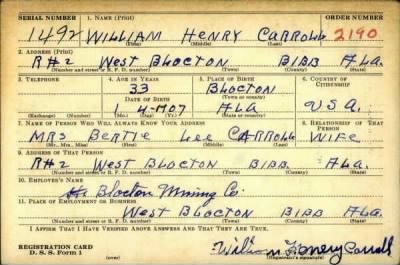 SERIAL NUMBER 1. NAME (Print) ORDER NUMBER
1492 WILLIAM HENRY CARROLL 2190
(First) (Middle) (Last)
2. ADDRESS (Print)
R#2 WEST BLOCTON BIBB ALA.
(Number and street or R. F. D. number) (Town) (County) (State)
3. TELEPHONE 4. AGE IN YEARS 5. PLACE OF BIRTH 6. COUNTRY OF CITIZENSHIP
33 BLOCTON
DATE OF BIRTH (Town or county)
1 4 - 07 ALA U.S.A.
(Exchange) (Number) (Mo.) (Day) (Yr.) (State or country)
7. NAME OF PERSON WHO WILL ALWAYS KNOW YOUR ADDRESS 8. RELATIONSHIP OF THAT PERSON
MRS BERTIE LEE CARROLL WIFE
(Mr., Mrs., Miss) (First) (Middle) (Last)
9. ADDRESS OF THAT PERSON
R#2 WEST BLOCTON BIBB ALA.
(Number and street or R. F. D. number) (Town) (County) (State)
10. EMPLOYER'S NAME
Blocton Mining Co.
11. PLACE OF EMPLOYMENT OR BUSINESS
WEST BLOCTON BIBB ALA.
(Number and street or R. F. D. number) (Town) (County) (State)
I AFFIRM THAT I HAVE VERIFIED ABOVE ANSWERS AND THAT THEY ARE TRUE.
REGISTRATION CARD
D. S. S. Form 1 (over) William Henry Carroll
(Registrant's signature)